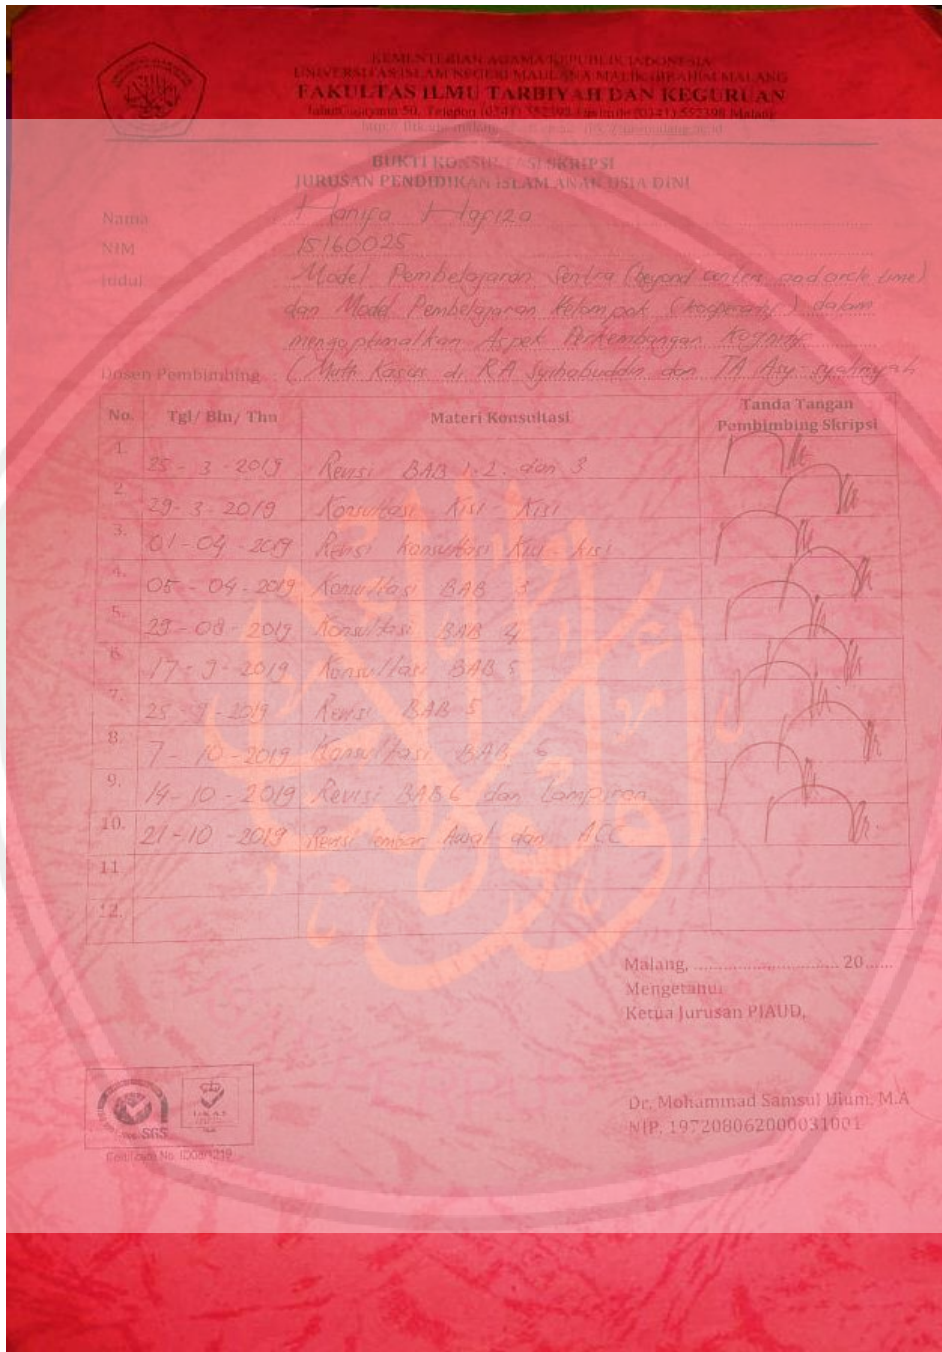 KEMENTERIAN AGAMA REPUBLIK INDONESIA
UNIVERSITAS ISLAM NEGERI MAULANA MALIK IBRAHIM MALANG
FAKULTAS ILMU TARBIYAH DAN KEGURUAN
Jalan Gajayana 50, Telepon (0341) 552398 Faximile (0341) 552398 Malang
BUKTI KONSULTASI SKRIPSI
JURUSAN PENDIDIKAN ISLAM ANAK USIA DINI
Nama : Hanifa Hafiza
NIM : 15160025
Judul : Model Pembelajaran Sentra (beyond centers and circle time)
dan Model Pembelajaran Kelompok (kooperatif) dalam
mengoptimalkan Aspek Perkembangan Kognitif
Dosen Pembimbing : (Multi Kasus di RA Syihabuddin dan TA
No. Tgl/ Bln/ Thn Materi Konsultasi Tanda Tangan Pembimbing Skripsi
1. 25 - 3 - 2019 Revisi BAB 1. 2. dan 3
2. 29 - 3 - 2019 Konsultasi Kisi - Kisi
3. 01 - 04 - 2019 Revisi Konsultasi Kisi - kisi
4. 05 - 04 - 2019 Konsultasi BAB 3
5. 29 - 08 - 2019 Konsultasi BAB 4
6. 17 - 9 - 2019 Konsultasi BAB 5
7. 25 - 9 - 2019 Revisi BAB 5
8. 7 - 10 - 2019 Konsultasi BAB 6
9. 14 - 10 - 2019 Revisi BAB 6 dan Lampiran
10. 21 - 10 - 2019 Revisi lembar Awal dan ACC
11
12.
Malang, .............................. 20......
Mengetahui
Ketua Jurusan PIAUD,
Dr. Mohammad Samsul Ulum, M.A
NIP. 197208062000031001
SGS
Certificate No. ID08/1219